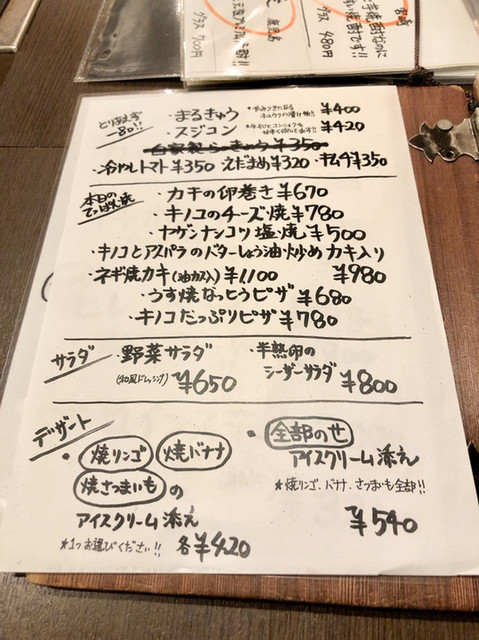 宮崎
グラス 480円
鹿児島
グラス 700円
とりあえず
一品!!
・まるきゅう ¥400
・スジコン ¥420
自家製らっきょう ¥350
・冷やしトマト ¥350 えだまめ ¥320 キムチ ¥350
本日の
てっぱん焼
・カキの卵巻き ¥670
・キノコのチーズ焼 ¥780
・ヤゲンナンコツ塩焼 ¥500
・キノコとアスパラのバターしょう油炒めカキ入り
¥980
・ネギ焼カキ(油カス入) ¥1,100
・うす焼なっとうピザ ¥680
・キノコたっぷりピザ ¥780
サラダ
・野菜サラダ
(和風ドレッシング) ¥650
・半熟卵の
シーザーサラダ ¥800
デザート
・焼リンゴ 焼バナナ
焼さつまいもの
アイスクリーム添え
★1つお選びください!! 各¥420
・全部のせ
アイスクリーム添え
★焼リンゴ、バナナ、さつまいも全部!!
¥540